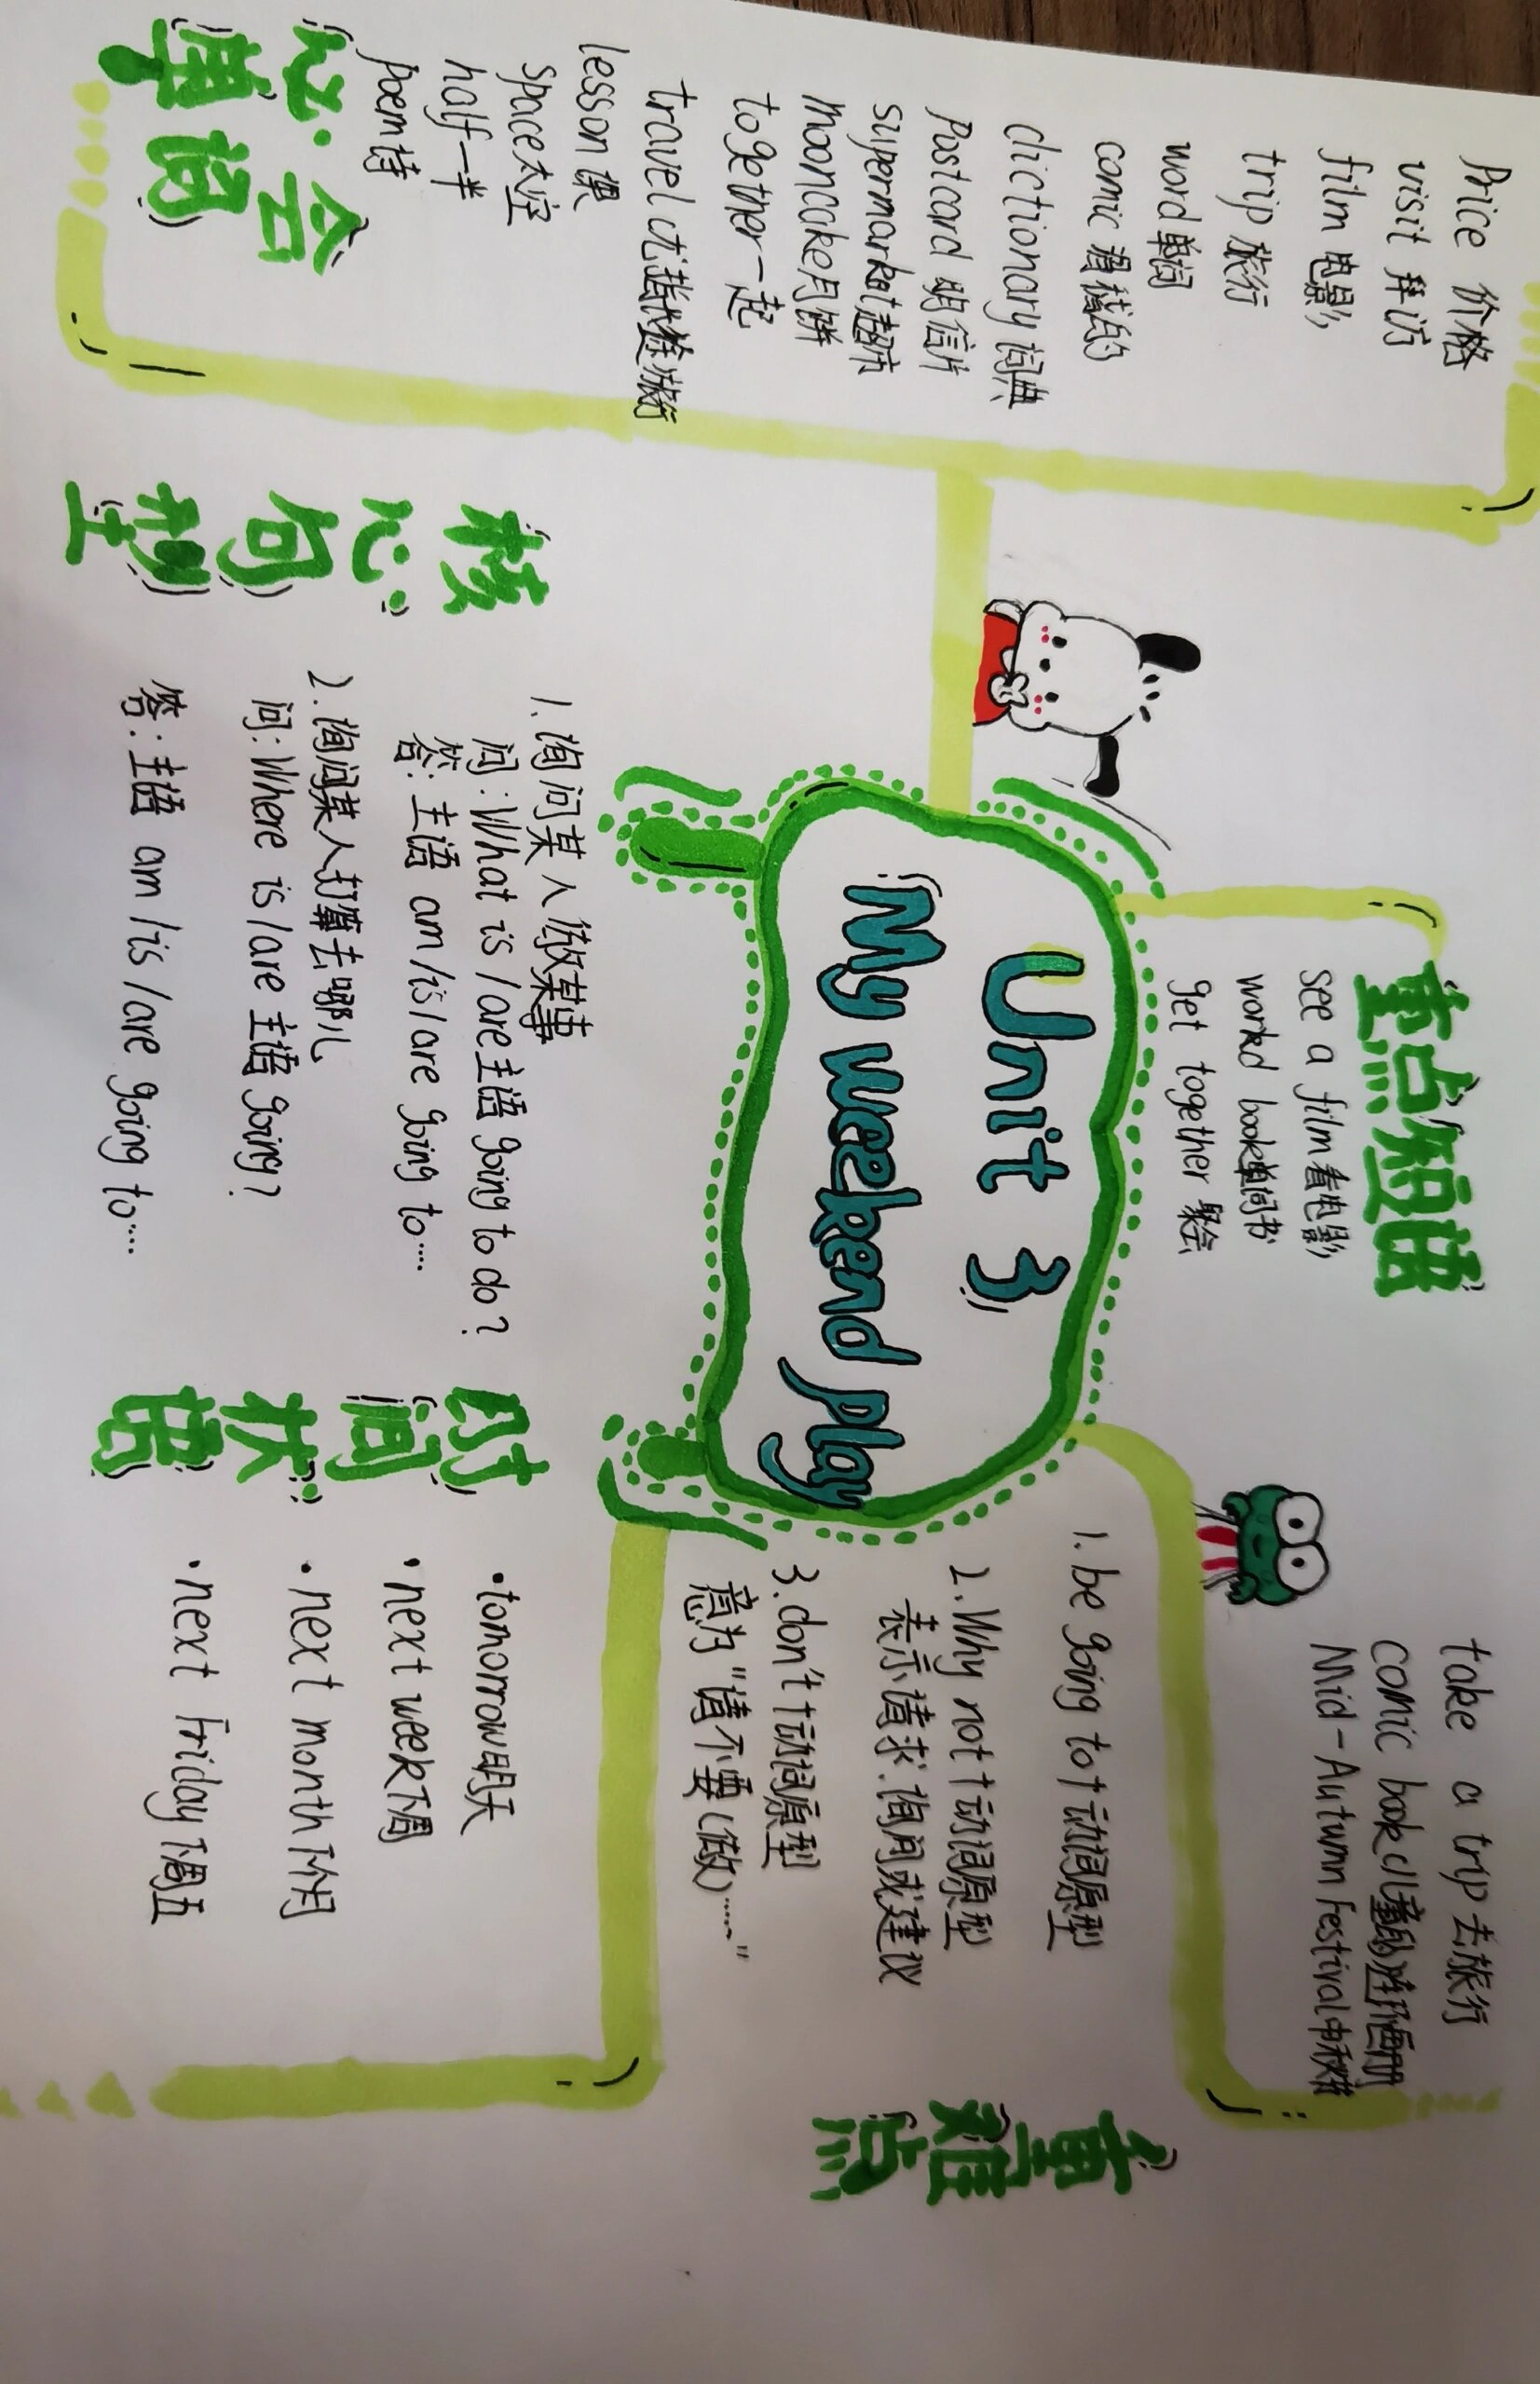 Unit 3
My weekend play
必会
单词
Price 价格
visit 拜访
film 电影
trip 旅行
word 单词
comic 滑稽的
dictionary 词典
Postcard 明信片
supermarket 超市
mooncake 月饼
together 一起
travel 尤指长途旅行
lesson 课
space 太空
half 一半
poem 诗
重点短语
see a film 看电影
word book 单词书
get together 聚会
take a trip 去旅行
comic book 儿童的连环画册
Mid-Autumn Festival 中秋节
重难点
1. be going to + 动词原型
2. Why not + 动词原型
表示请求.询问或建议
3. don't + 动词原型
意为“请不要(做)……”
核心句型
1. 询问某人做某事
问: What is /are 主语 going to do?
答: 主语 am /is /are going to……
2. 询问某人打算去哪儿
问: Where is /are 主语 going?
答: 主语 am /is /are going to……
时间状语
·tomorrow 明天
·next week 下周
·next month 下个月
·next Friday 下周五